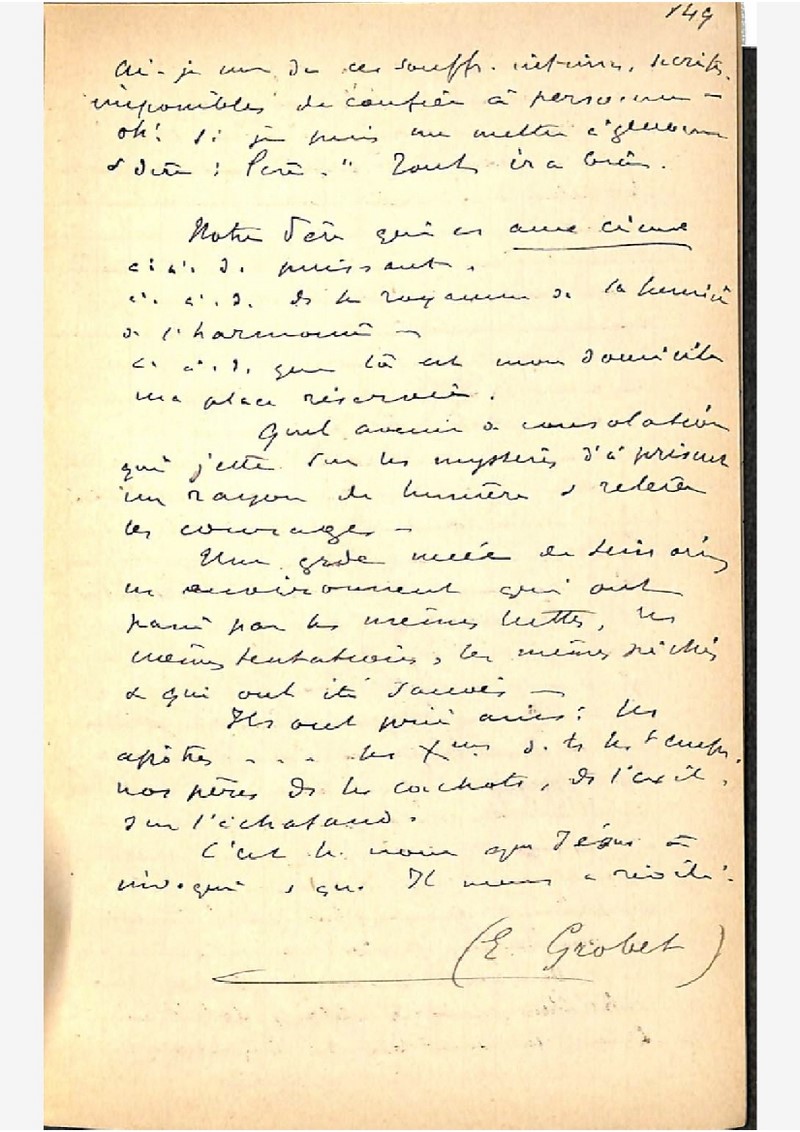 149
Ai-je une de ces souffr. intimes, secrètes,
impossibles de confier à personne –
oh! si je puis me mettre à genoux
& dire : Père. " Tout ira bien.
Notre Père qui es aux cieux
c. à. d. puissant.
c. à. d. ds le royaume de la lumière
de l'harmonie –
c. à. d. que là est mon domicile
ma place réservée.
Quel avenir de consolation
qui jette sur les mystères d'à présent
un rayon de lumière & relève
les courages –
Une grde nuée de témoins
ns environnent qui ont
passé par les mêmes luttes, les
mêmes tentations, les mêmes péchés
& qui ont été sauvés –
Ils ont prié ainsi : les
apôtres . . . les Xens d. ts les temps,
nos pères ds les cachots, ds l'exil,
sur l'échafaud.
C'est le nom que Jésus a
invoqué, & qu'Il nous a révélé.
(E. Grobet)